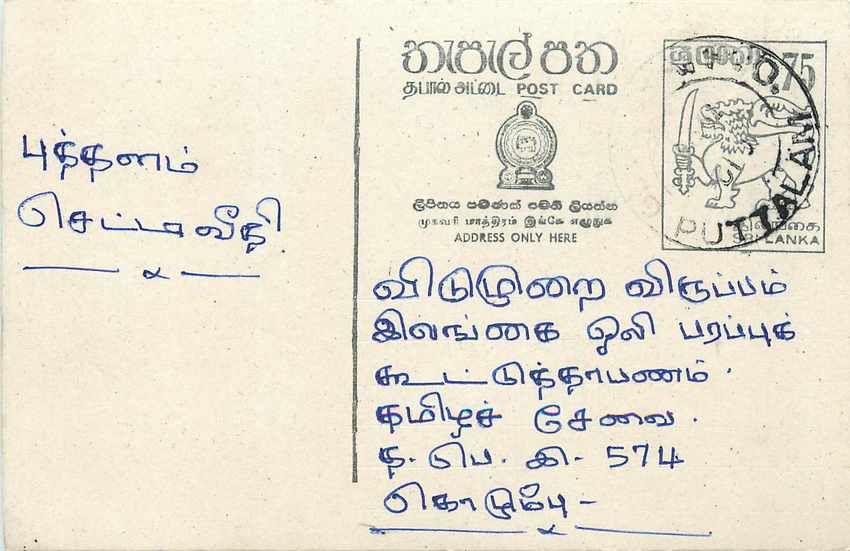 තැපැල් පත
தபால் அட்டை POST CARD
ලිපිනය පමණක් මෙහි ලියන්න
முகவரி மாத்திரம் இங்கே எழுதுக
ADDRESS ONLY HERE
75
இலங்கை
SRI LANKA
PUTTALAM
புத்தளம்
செட்டி வீதி
விடுமுறை விருப்பம்
இலங்கை ஒலி பரப்புக்
கூட்டுத்தாபணம்.
தமிழச் சேவை.
த. பெ. கி- 574
கொழும்பு -